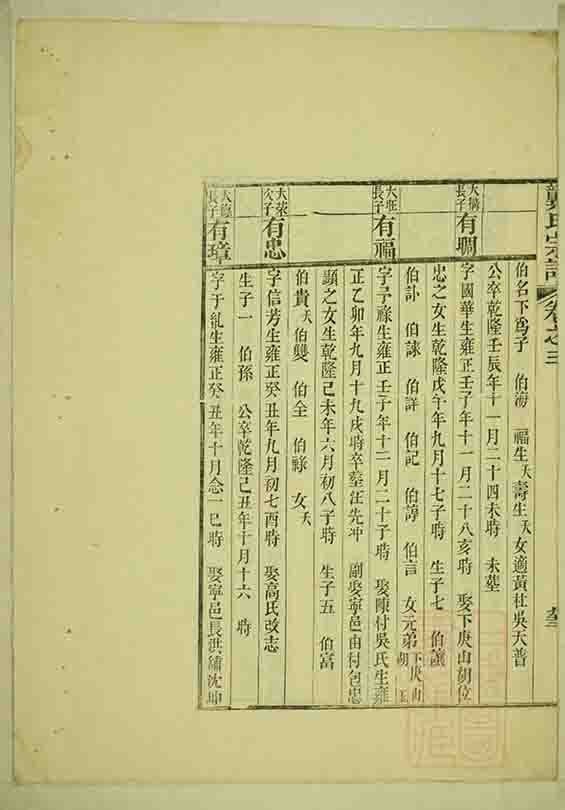 氏宗譜 卷之三
伯名下爲子 伯海 福生夭 壽生夭 女適黃杜吳天普
公卒乾隆壬辰年十一月二十四未時 未塟
長子 有琱
字國華生雍正壬子年十一月二十八亥時 娶下庚山胡位
忠之女生乾隆戊午年九月十七子時 生子七 伯讓
伯訃 伯諫 伯詳 伯記 伯諄 伯言 女元弟 下庚山胡
大旺長子 有福
字予祿生雍正壬子年十二月二十子時 娶陳村吳氏生雍
正乙卯年九月十九戌時卒塟汪先冲 副娶寧邑由村包忠
顯之女生乾隆己未年六月初八子時 生子五 伯富
伯貴夭 伯雙 伯全 伯祿 女夭
大榮次子 有忠
字信芳生雍正癸丑年九月初七酉時 娶高氏改志
生子一 伯孫 公卒乾隆己丑年十月十六 時
長子 有璋
字于乹生雍正癸丑年十月念一巳時 娶寧邑長洪繡沈坤